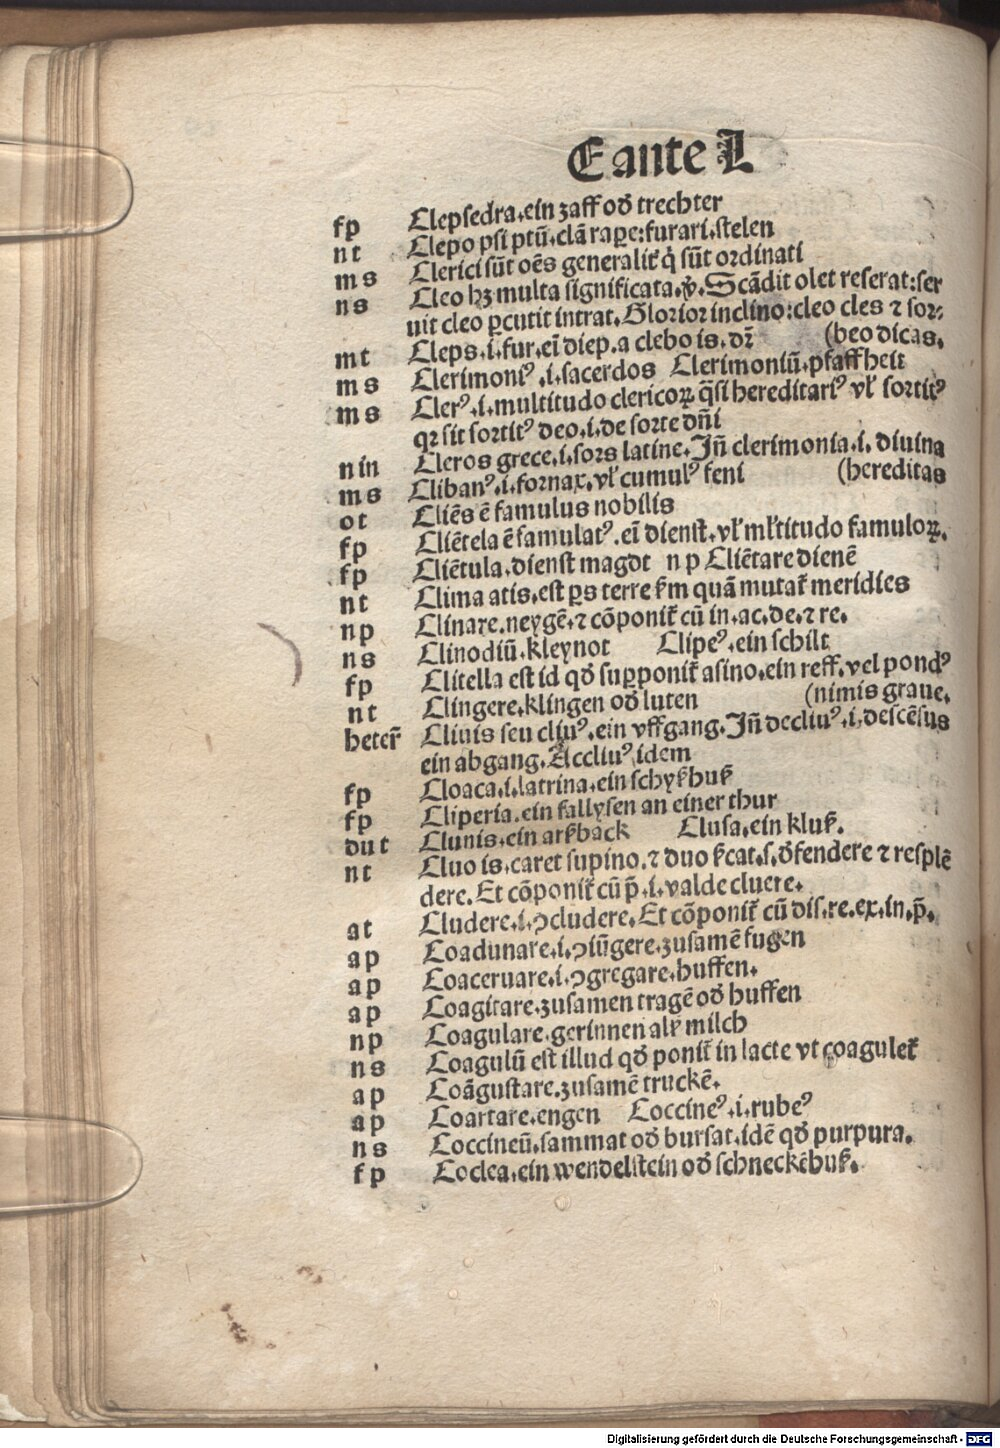 E ante L
fp Clepsedra.ein zaff oď trechter
nt Clepo psi ptū.clā rape:furari.stelen
ms Clerici sūt oēs generalit' q̇ sūt ordinati
ns Cleo hꝫ multa significata.ꝟ.Scādit olet reserat:ser
uit cleo ꝑcutit intrat.Glorior inclino:cleo cles ⁊ sor⸗
mt Cleps.i.fur.eī diep.a clebo is.dr̄ (beo dicas.
ms Clerimoniꝰ.i.sacerdos Clerimoniū.pfaffheit
ms Clerꝰ.i.multitudo clericoꝝ q̄si hereditariꝰ vl' sortitꝰ
qr sit sortitꝰ deo.i.de sorte dn̄i
nin Cleros grece.i.sors latine.Jn̄ clerimonia.i.diuina
ms Clibanꝰ.i.fornax.vl' cumulꝰ feni (hereditas
ot Cliēs ē famulus nobilis
fp Cliētela ē famulatꝰ.eī dienst.vl' ml'titudo famuloꝝ.
fp Cliētula.dienst magdt np Cliētare dienē
nt Clima atis.est ꝑs terre ẜm quā mutat' meridies
np Clinare.neygē.⁊ cōponit' cū in.ac.de.⁊ re.
ns Clinodiū.kleynot Clipeꝰ.ein schilt
fp Clitella est id qď suꝑponit' asino.ein reff.vel pondꝰ
nt Clingere.klingen oď luten (nimis graue.
heter̄ Cliuis seu cliuꝰ.ein vffgang.Jn̄ decliuꝰ.i.descēsus
ein abgang.Accliuꝰ idem
fp Cloaca.i.latrina.ein schyßhuß
fp Cliperia.ein fallysen an einer thur
dut Clunis.ein arßback Clusa.ein kluß.
nt Cluo is.caret supino.⁊ duo ẜcat.s.ďfendere ⁊ resplē
dere.Et cōponit' cū p̄.i.valde cluere.
at Cludere.i.ꝯcludere.Et cōponit' cū dis.re.ex.in.p̄.
ap Coadunare.i.ꝯiūgere.zusamē fugen
ap Coaceruare.i.ꝯgregare.huffen.
ap Coagitare.zusamen tragē oď huffen
np Coagulare.gerinnen alß milch
ns Coagulū est illud qď ponit' in lacte vt coagulet'
ap Coāgustare.zusamē truckē.
ap Coartare.engen Coccineꝰ.i.rubeꝰ
ns Coccineū.sammat oď bursat.idē qď purpura.
fp Coclea.ein wendelstein oď schneckēhuß.
Digitalisierung gefördert durch die Deutsche Forschungsgemeinschaft - DFG